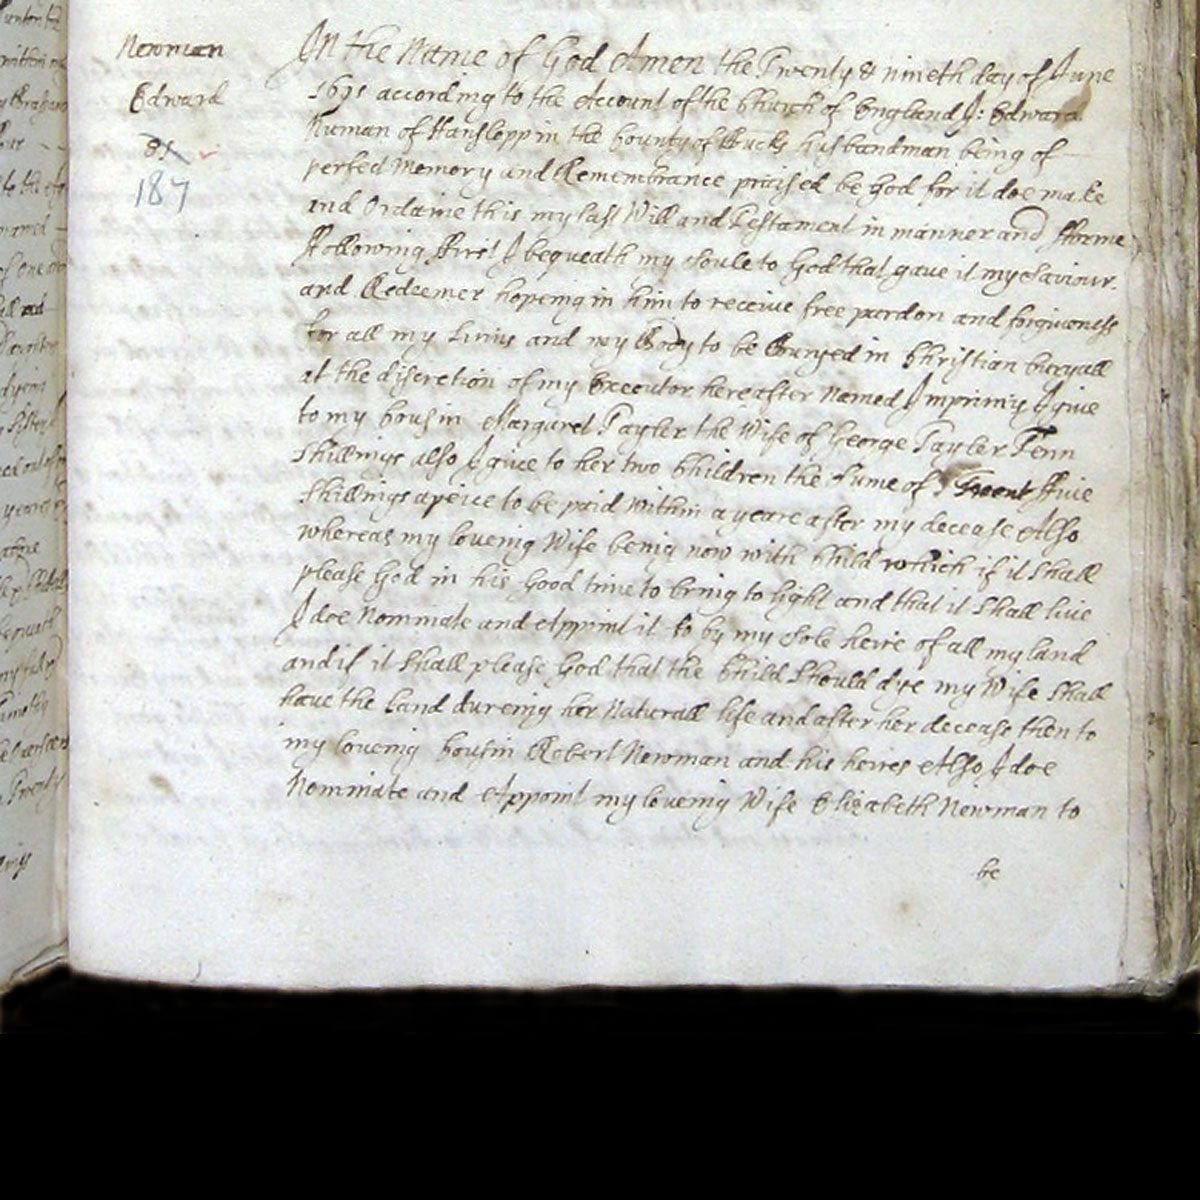 Newman
Edward
187
In the Name of God Amen the Twenty & nineth day of June
1691 according to the Account of the Church of England J: Edward
Numan of Hanslepp in the County of Bucks husbandman being of
perfect Memory and Remembrance praised be God for it doe make
and Ordaine this my last Will and Testament in manner and fforme
ffollowing ffirst I bequeath my Soule to God that gave it my Saviour
and Redeemer hopeing in him to receive free pardon and forgiveness
for all my Sinns and my Body to be Buryed in Christian buryall
at the discretion of my Executor hereafter Named Imprimis I give
to my Cousin Margaret Tayler the Wife of George Tayler Tenn
Shillings also I give to her two Children the Sume of ffive
Shillings apeice to be paid within a yeare after my decease Also
whereas my loveing Wife being now with Child which if it shall
please God in his Good time to bring to light and that it Shall live
I doe Nominate and Appoint it to by my Sole heire of all my land
and if it Shall please God that the Child Should dye my Wife Shall
have the Land dureing her Naturall life and after her decease then to
my loveing Cousin Robert Newman and his heires Also I doe
Nominate and Appoint my loveing Wife Elizabeth Newman to
be